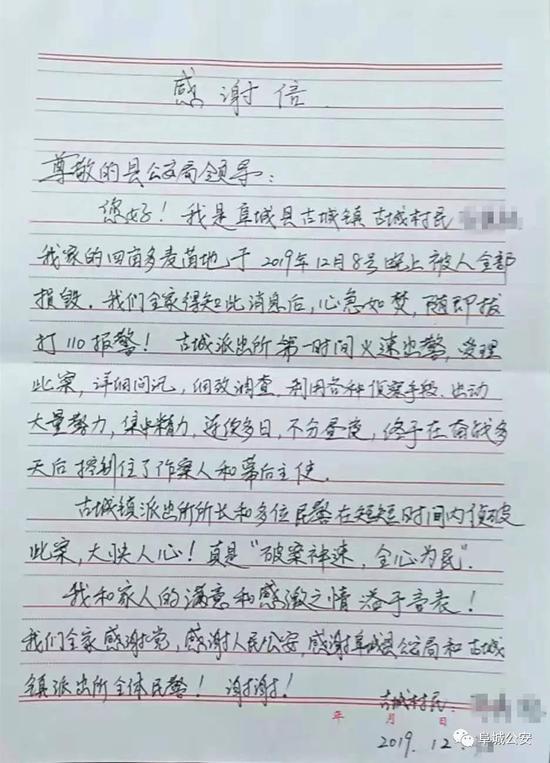 感谢信
尊敬的县公安局领导：
您好！我是阜城县古城镇古城村民
我家的四亩多麦苗地于2019年12月8号晚上被人全部
损毁．我们全家得知此消息后，心急如焚，随即拔
打110报警！古城派出所第一时间火速出警，受理
此案，详细问讯，细致调查，利用各种侦察手段．出动
大量警力，集中精力，连续多日，不分昼夜，终于在奋战多
天后控制住了作案人和幕后主使．
古城镇派出所所长和多位民警在短短时间内侦破
此案，大快人心！真是“破案神速，全心为民”．
我和家人的满意和感激之情溢于言表！
我们全家感谢党，感谢人民公安，感谢阜城县公安局和古城
镇派出所全体民警！谢谢！
古城村民：
年 月 日
2019．12．
阜城公安